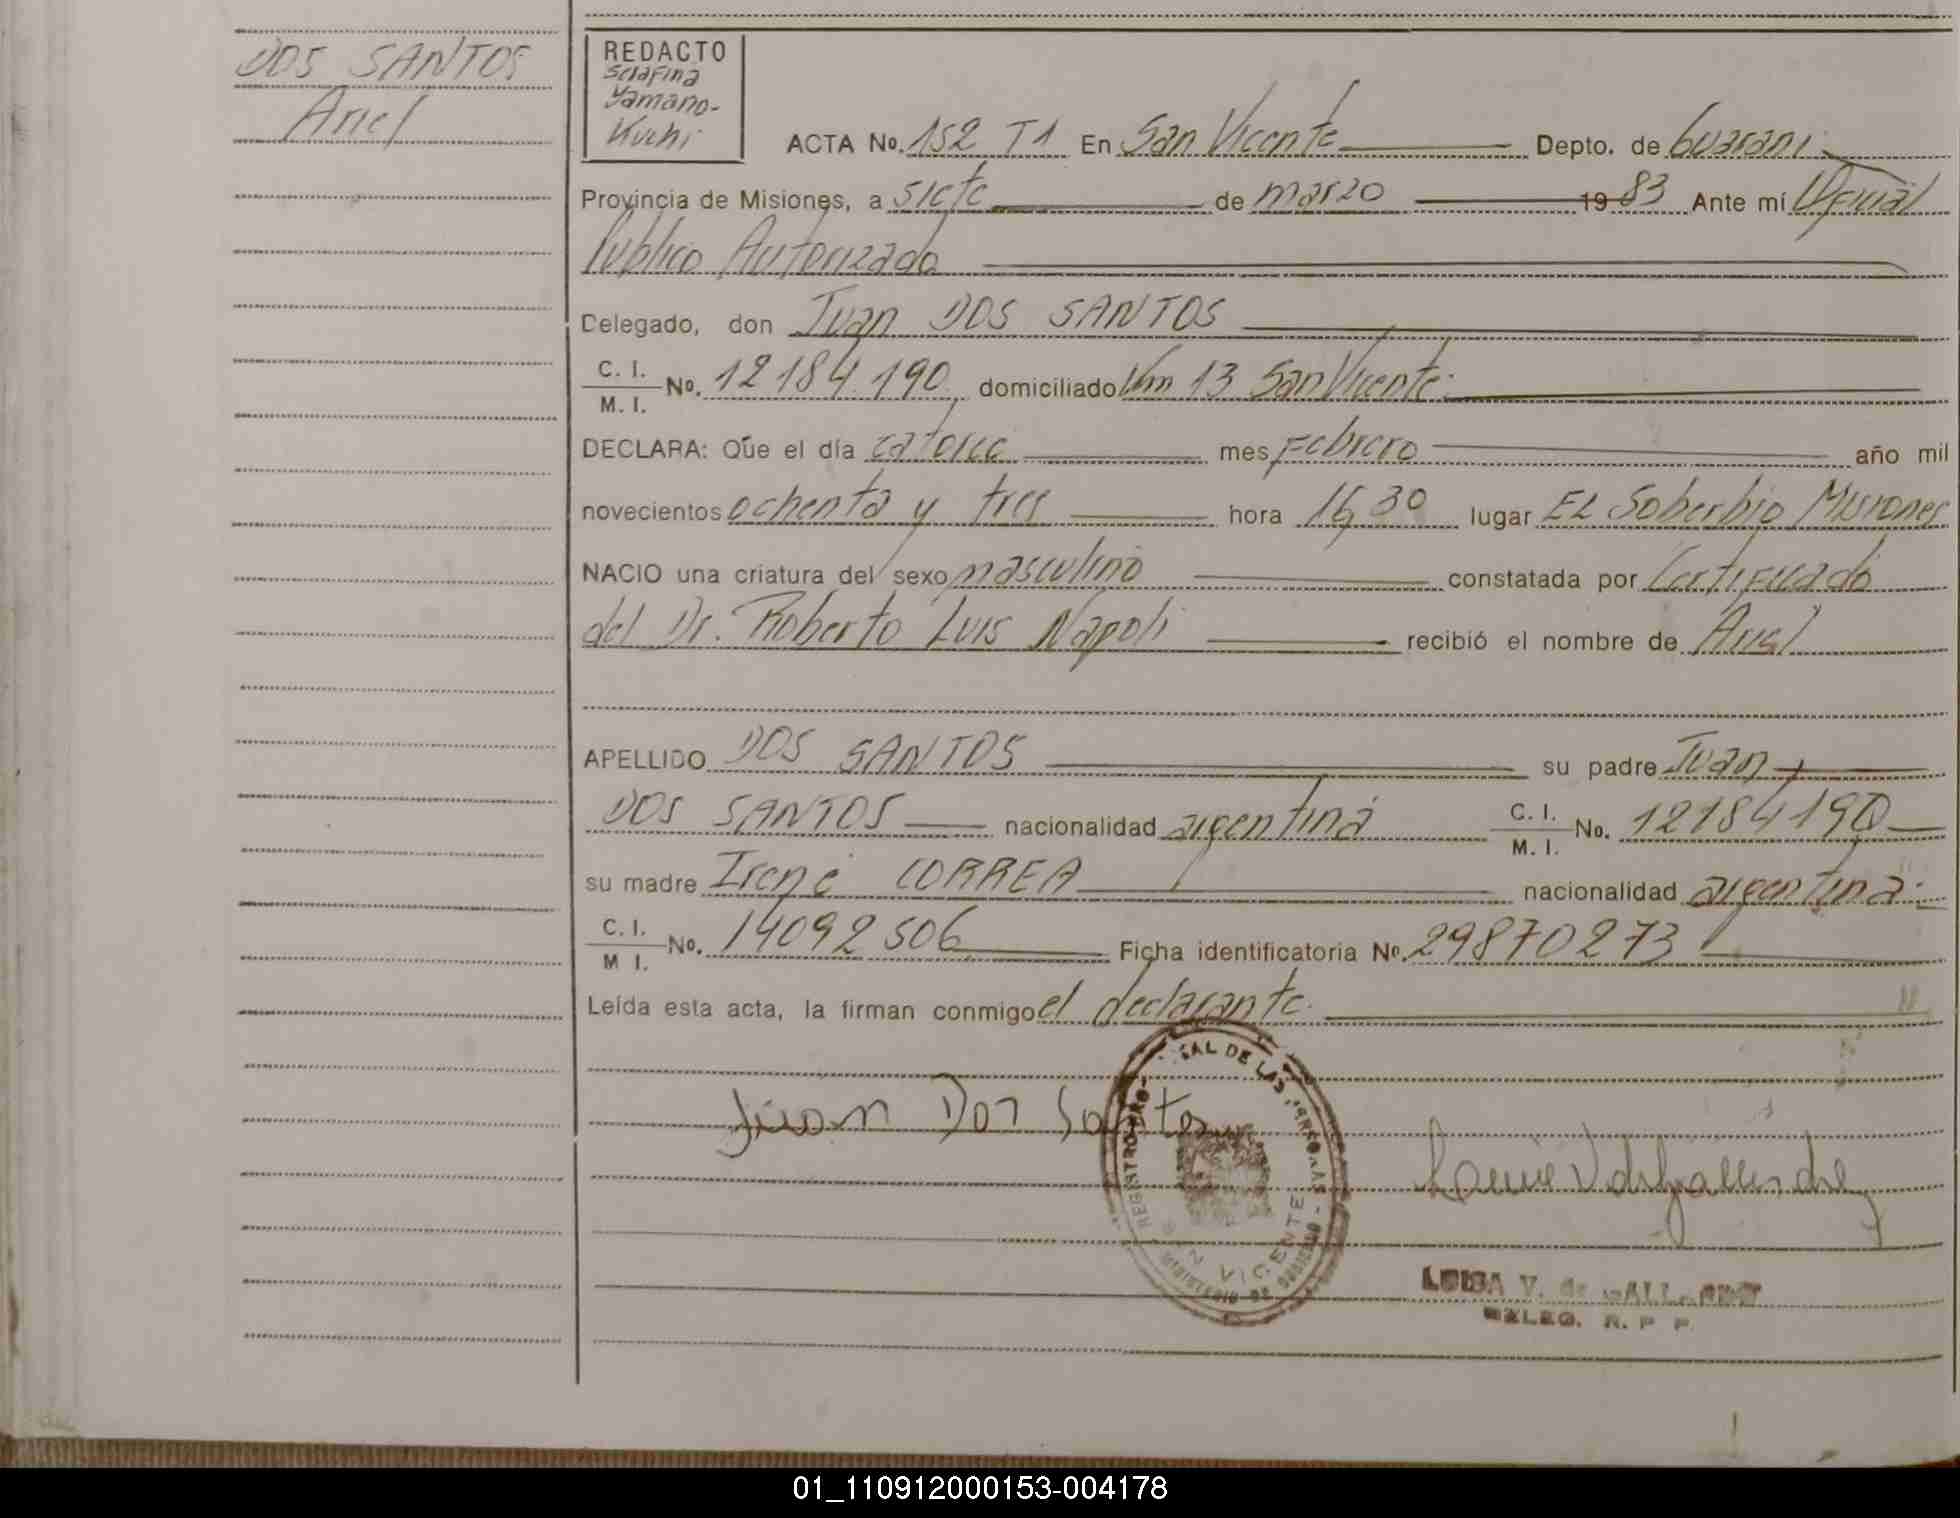 DOS SANTOS
Ariel
REDACTO
Serafina
Yamano-
Kuchi
ACTA No. 152 T1 En San Vicente Depto. de Guarani
Provincia de Misiones, a siete de marzo 1983 Ante mí Oficial
Publico Autorizado
Delegado, don Juan DOS SANTOS
C. I. / M. I. No. 12184.190 domiciliado Km 13 San Vicente.
DECLARA: Que el día catorce mes Febrero año mil
novecientos ochenta y tres hora 16,30 lugar EL Soberbio Misiones
NACIO una criatura del sexo masculino constatada por Certificado
del Dr. Roberto Luis Napoli recibió el nombre de Ariel
APELLIDO DOS SANTOS su padre Juan
DOS SANTOS nacionalidad argentina C. I. / M. I. No. 12184190
su madre Irene CORREA nacionalidad argentina.
C. I. / M I. No. 14092506 Ficha identificatoria No. 29870273
Leída esta acta, la firman conmigo el declarante.
Juan Dos Santos
SAN VICENTE
LUISA V. de
DELEG. R. P P.
01_110912000153-004178